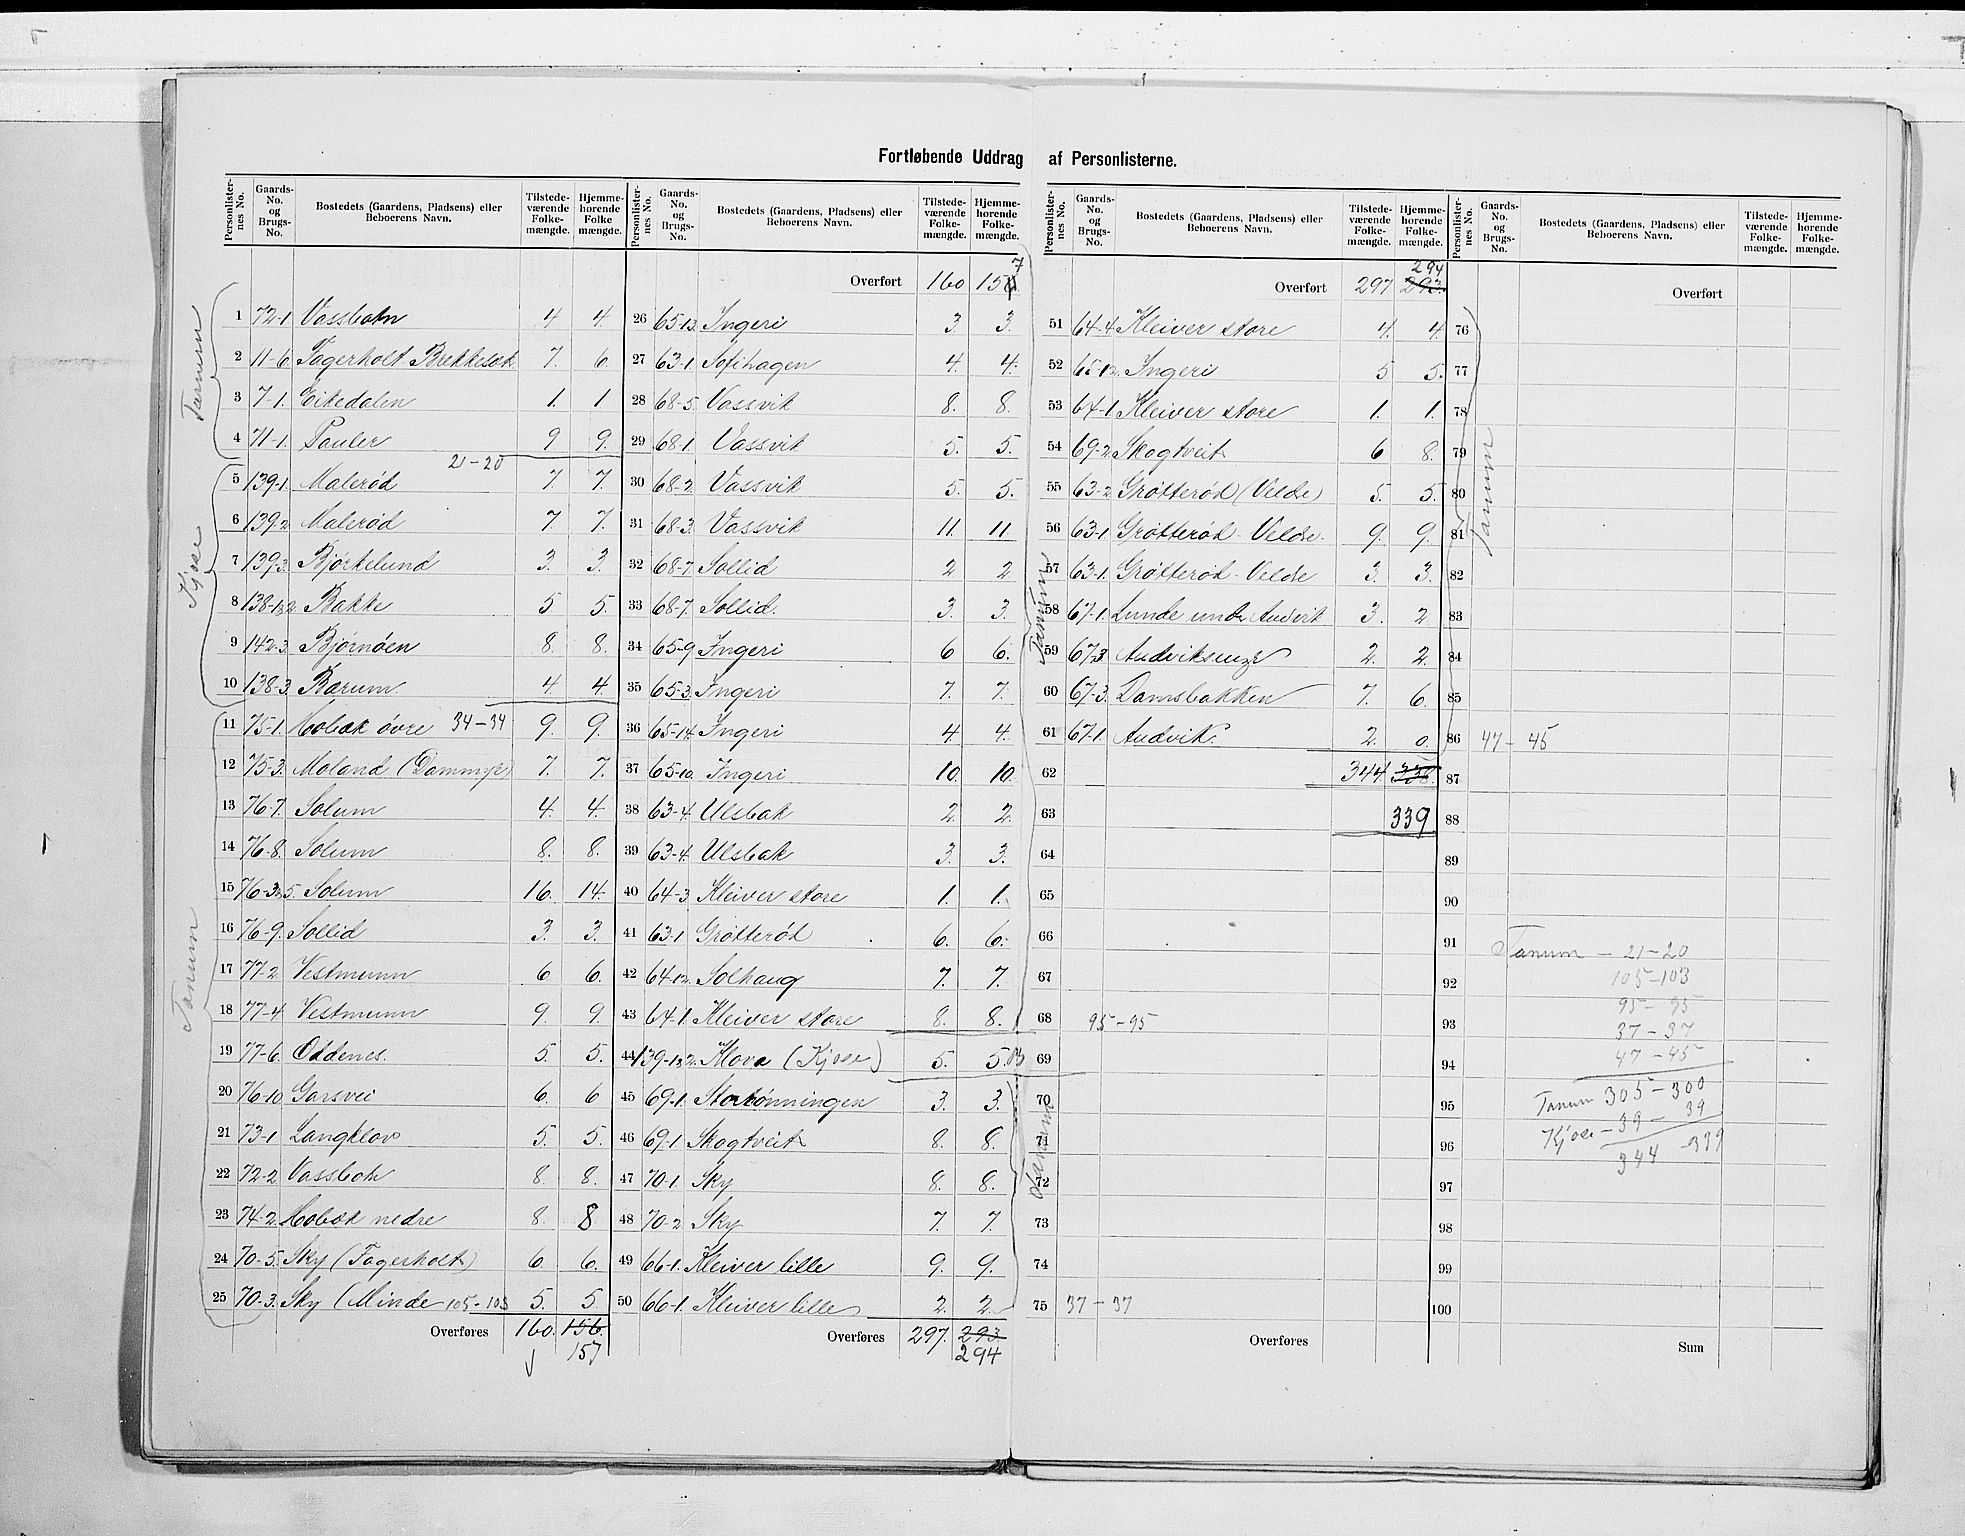 Fortløbende Uddrag af Personlisterne.
Personlisternes No. Gaards-No. og Brugs-No. Bostedets (Gaardens, Pladsens) eller Beboerens Navn. Tilstedeværende Folkemængde. Hjemmehørende Folkemængde.
1 72-1 Vassbotn 4 4.
2 11-6 Fagerholt Bækkesæk. 7. 6.
3 7-1. Eikedalen 1. 1
4 71-1. Pauler 9 9.
21-20
5 139-1. Malerød 7. 7.
6 139-2 Malerød 7 7.
7 139-3 Bjørkelund 3. 3.
8 138-1,2 Bakke 5 5.
9 142-3 Bjørnøen 8. 8.
10 138-3. Barum. 4. 4
11 75-1. Hobæk øvre 34-34 9. 9.
12 75-3. Moland (Dammyr) 7. 7.
13 76-7. Solum 4. 4.
14 76-8. Solum 8. 8.
15 76-3,5. Solum 16. 14.
16 76-9. Sollid 3. 3.
17 77-2. Vestmunn 6 6.
18 77-4. Vestmunn 9. 9.
19 77-6. Oddenes. 5. 5.
20 76-10 Garsvei 6. 6
21 73-1 Langklov 5. 5.
22 72-2 Vassbotn 8. 8.
23 74-2. Hobæk nedre 8. 8
24 70-5. Sky (Fagerholt) 6. 6.
25 70-3. Sky (Minde 105-103 5. 5.
Overføres 160. 156.
157
Tanum
Kjose
Tanum
Overført 160 156. 7
26 65-13. Ingeri 3. 3.
27 63-1. Sofihagen 4. 4.
28 68-5. Vassvik 8. 8.
29 68-1. Vassvik 5. 5.
30 68-2. Vassvik 5. 5.
31 68-3. Vassvik 11. 11.
32 68-7. Sollid 2 2
33 68-7. Sollid. 3. 3.
34 65-9 Ingeri 6 6.
35 65-3. Ingeri 7. 7.
36 65-14. Ingeri 4 4.
37 65-10. Ingeri 10. 10.
38 63-4. Ulsbak 2. 2.
39 63-4. Ulsbak 3. 3.
40 64-3. Kleiver store 1. 1.
41 63-1 Grøtterød 6. 6.
42 64-12. Solhaug 7. 7.
43 64-1. Kleiver store 8. 8.
44 139-1,2. Klova (Kjose) 5. 5.
45 69-1. Storrønningen 3. 3.
46 69-1 Skogtveit 8. 8.
47 70-1. Sky 8. 8.
48 70-2. Sky 7. 7.
49 66-1. Kleiver lille 9. 9.
50 66-1. Kleiver lille 2. 2.
Overføres 297. 293
294
Tanum
Tanum
Overført 297 293. 294
51 64-4 Kleiver store 4. 4.
52 65-12. Ingeri 5 5.
53 64-1. Kleiver store 1. 1.
54 69-2. Skogtveit 6 8.
55 63-2 Grøtterød (Velde) 5. 5.
56 63-1. Grøtterød - Velde. 9. 9.
57 63-1. Grøtterød - Velde 3. 3.
58 67-1. Lunde under Audvik 3. 2
59 67-3. Audviksunde 2. 2.
60 67-3. Damsbakken 7. 6.
61 67-1. Audvik. 2. 0.
62 344. 338.
63 339
64
65
66
67
68 95-95
69
70
71
72
73
74
75 37-37
Overføres
Overført
76
77
78
79
80
81
82
83
84
85
86 47-45
87
88
89
90
91 Tanum - 21-20
92 105-103
95-95
93 37-37
94 47-45
95 Tanum 305-300
96 Kjose - 39 - 39
344 - 339
97
98
99
100
Sum
Tanum